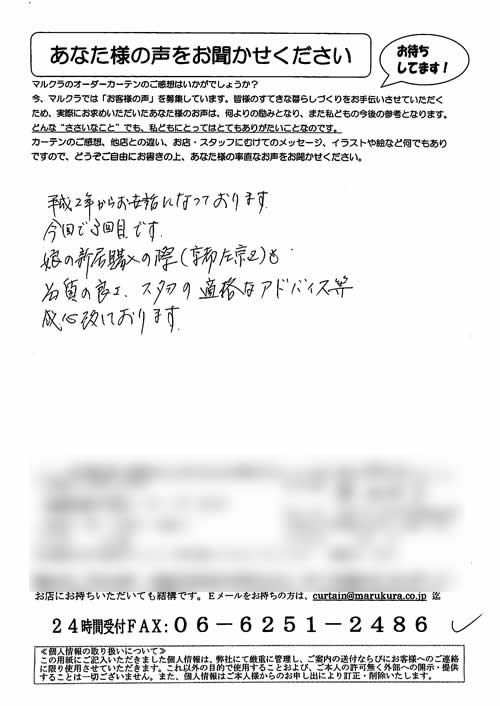 あなた様の声をお聞かせください
お待ち
してます!
マルクラのオーダーカーテンのご感想はいかがでしょうか?
今、マルクラでは「お客様の声」を募集しています。皆様のすてきな暮らしづくりをお手伝いさせていただく
ため、実際にお求めいただいたあなた様のお声は、何よりの励みとなり、また私どもの今後の参考となります。
どんな“ささいなこと”でも、私どもにとってはとてもありがたいことなのです。
カーテンのご感想、他店との違い、お店・スタッフにむけてのメッセージ、イラストや絵など何でもあり
ですので、どうぞご自由にお書きの上、あなた様の率直なお声をお聞かせください。
平成2年からお世話になっております.
今回で3回目です.
娘の新居購入の際(京都左京区)も
品質の良さ、スタッフの適格なアドバイス等
感心致しております.
お店にお持ちいただいても結構です。Eメールをお持ちの方は、curtain@marukura.co.jp 迄
24時間受付FAX:06-6251-2486
≪個人情報の取り扱いについて≫
この用紙にご記入いただきました個人情報は、弊社にて厳重に管理し、ご案内の送付ならびにお客様へのご連絡
に限り使用させていただきます。これ以外の目的で使用することおよび、ご本人の許可無く外部への開示・提供
することは一切ございません。また、個人情報はご本人様からのお申し出により訂正・削除いたします。